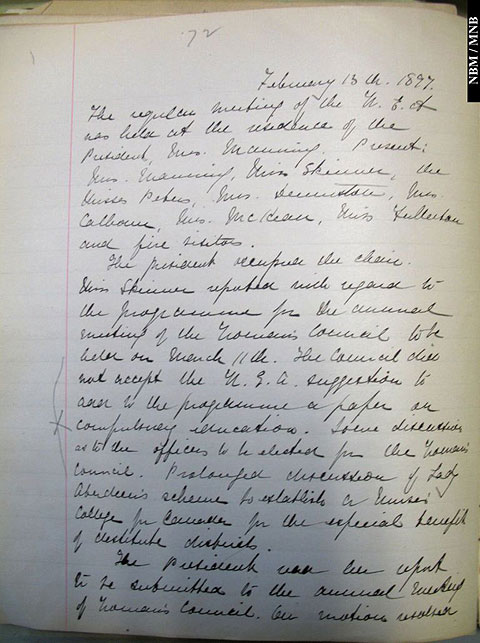 72
February 13th. 1897.
The regular meeting of the W. E. A
was held at the residence of the
President, Mrs. Manning. Present:
Mrs. Manning, Miss Skinner, the
Misses Peters, Mrs. Denniston, Mrs.
Calhoun, Mrs. McLean, Miss Fullerton
and five visitors.
The president occupied the chair.
Miss Skinner reported with regard to
the programme for the annual
meeting of the Woman's Council to be
held on March 11th. The Council did
not accept the W. E. A. suggestion to
add to the programme a paper on
x compulsory education. Some discussion
as to the officers to be elected for the Woman's
Council. Prolonged discussion of Lady
Aberdeen's scheme to establish a Nurses'
College for Canada for the especial benefit
of destitute districts.
The President read her report
to be submitted to the annual meeting
of Woman's Council. On motion resolved
NBM / MNB